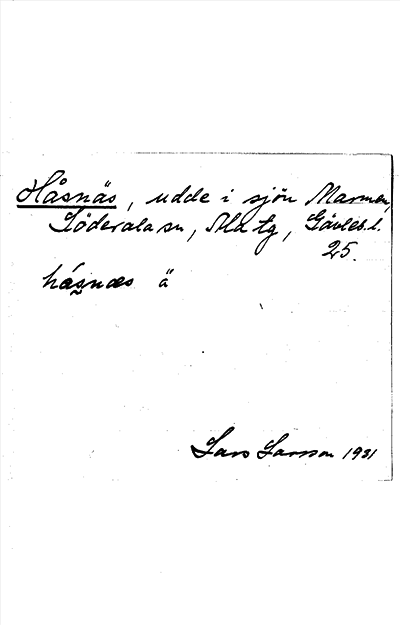 Håsnäs, udde i sjön Marmen,
Söderala sn, Ala tg, Gävleb. l.
25.
håsnæs ä
Lars Larsson 1931